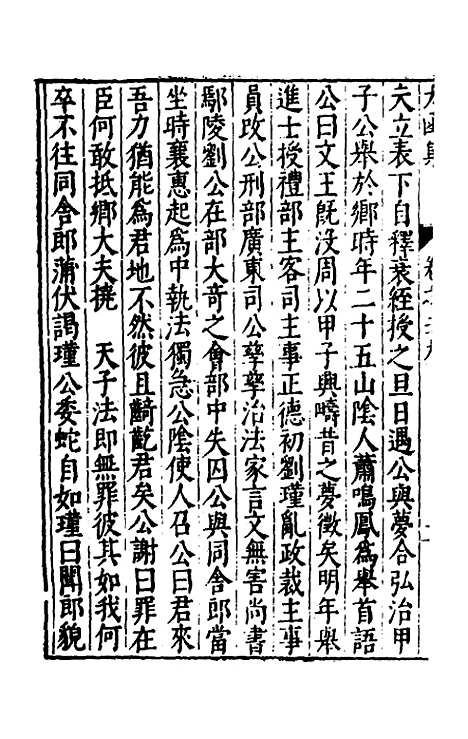 夫立表下自釋衰絰授之旦日遇公與夢合弘治甲
子公舉於鄉時年二十五山陰人蕭鳴鳳為舉首語
公曰文王旣沒周以甲子興疇昔之夢徵矣明年舉
進士授禮部主客司主事正德初劉瑾亂政裁主事
員改公刑部廣東司公孳孳治法家言文無害尚書
鄢陵劉公在部大奇之會部中失囚公與同舍郎當
坐時襄惠起為中執法獨急公陰使人召公曰君來
吾力猶能為君地不然彼且齮齕君矣公謝曰罪在
臣何敢抵鄉大夫撓　天子法即無罪彼其如我何
卒不往同舍郎蒲伏謁瑾公委蛇自如瑾曰聞郎貌